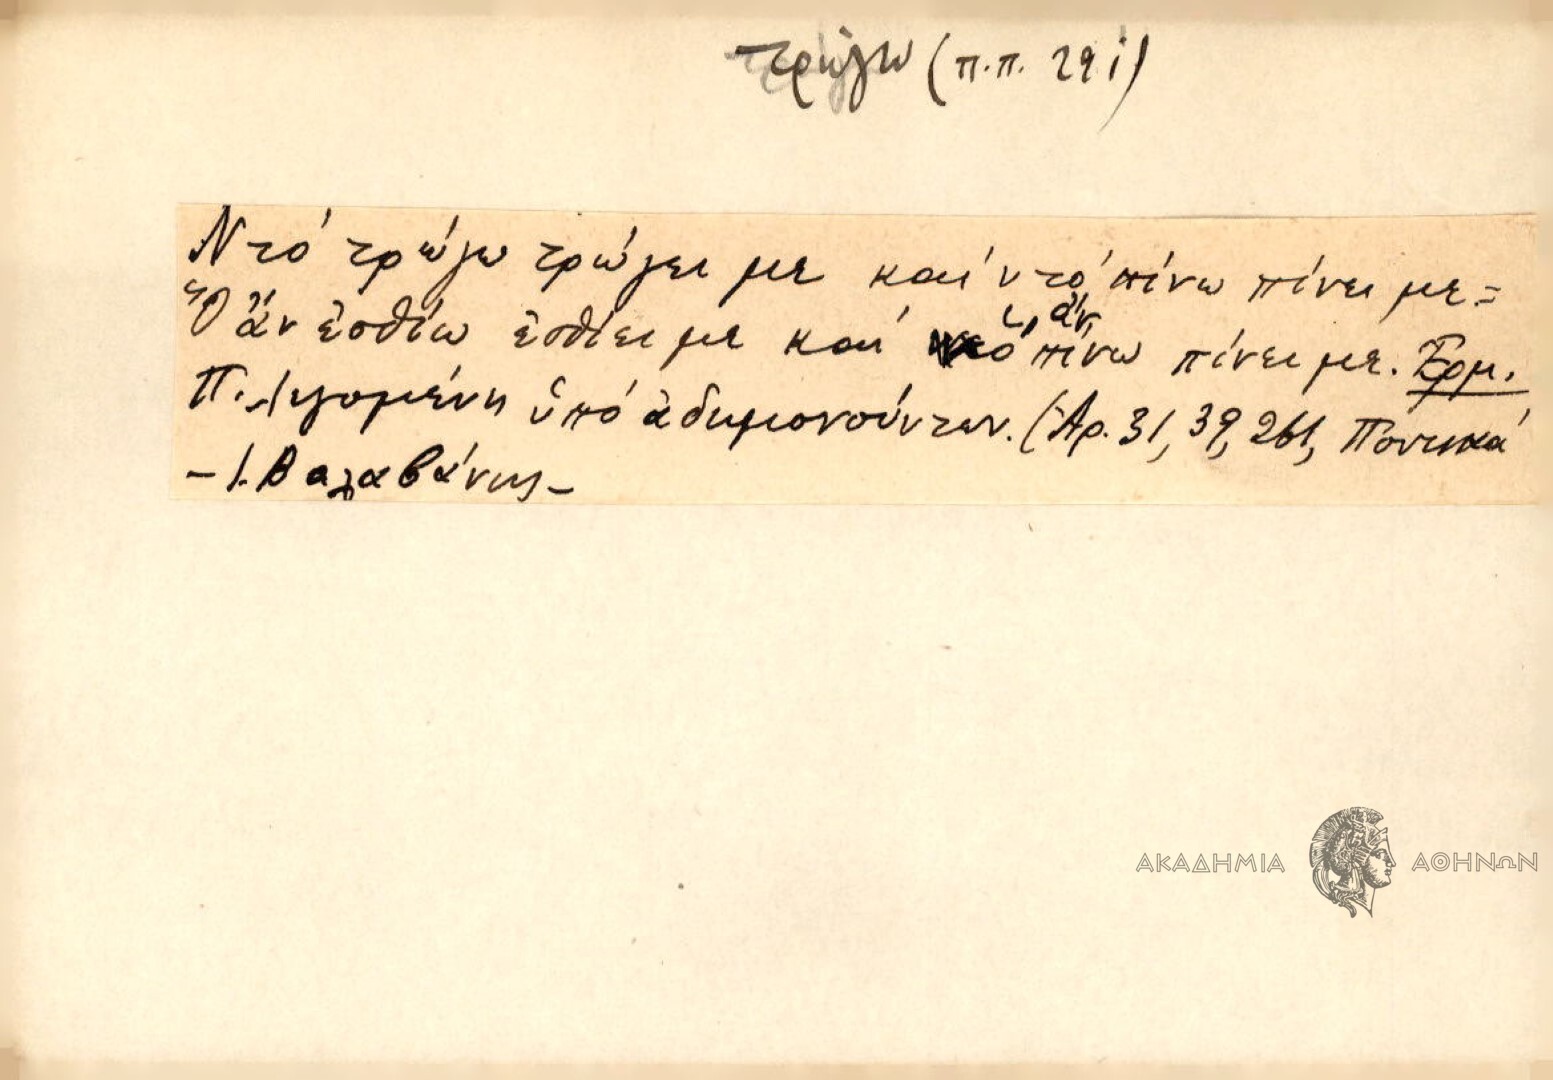 τρώγω (π.π. 291)
Ντό τρώγω τρώγει με καί ντό πίνω πίνει με=
Ὅ ἄν ἐσθίω ἐσθίει με καί ὅ, ἄν, πίνω πίνει με. Ἑρμ.
Π. Λεγομένη ὑπό ἀδημονούντων. (Ἀρ. 31, 39, 261, Ποντικά
– Ι. Βαλαβάνης –
ΑΚΑΔΗΜΙΑ ΑΘΗΝΩΝ